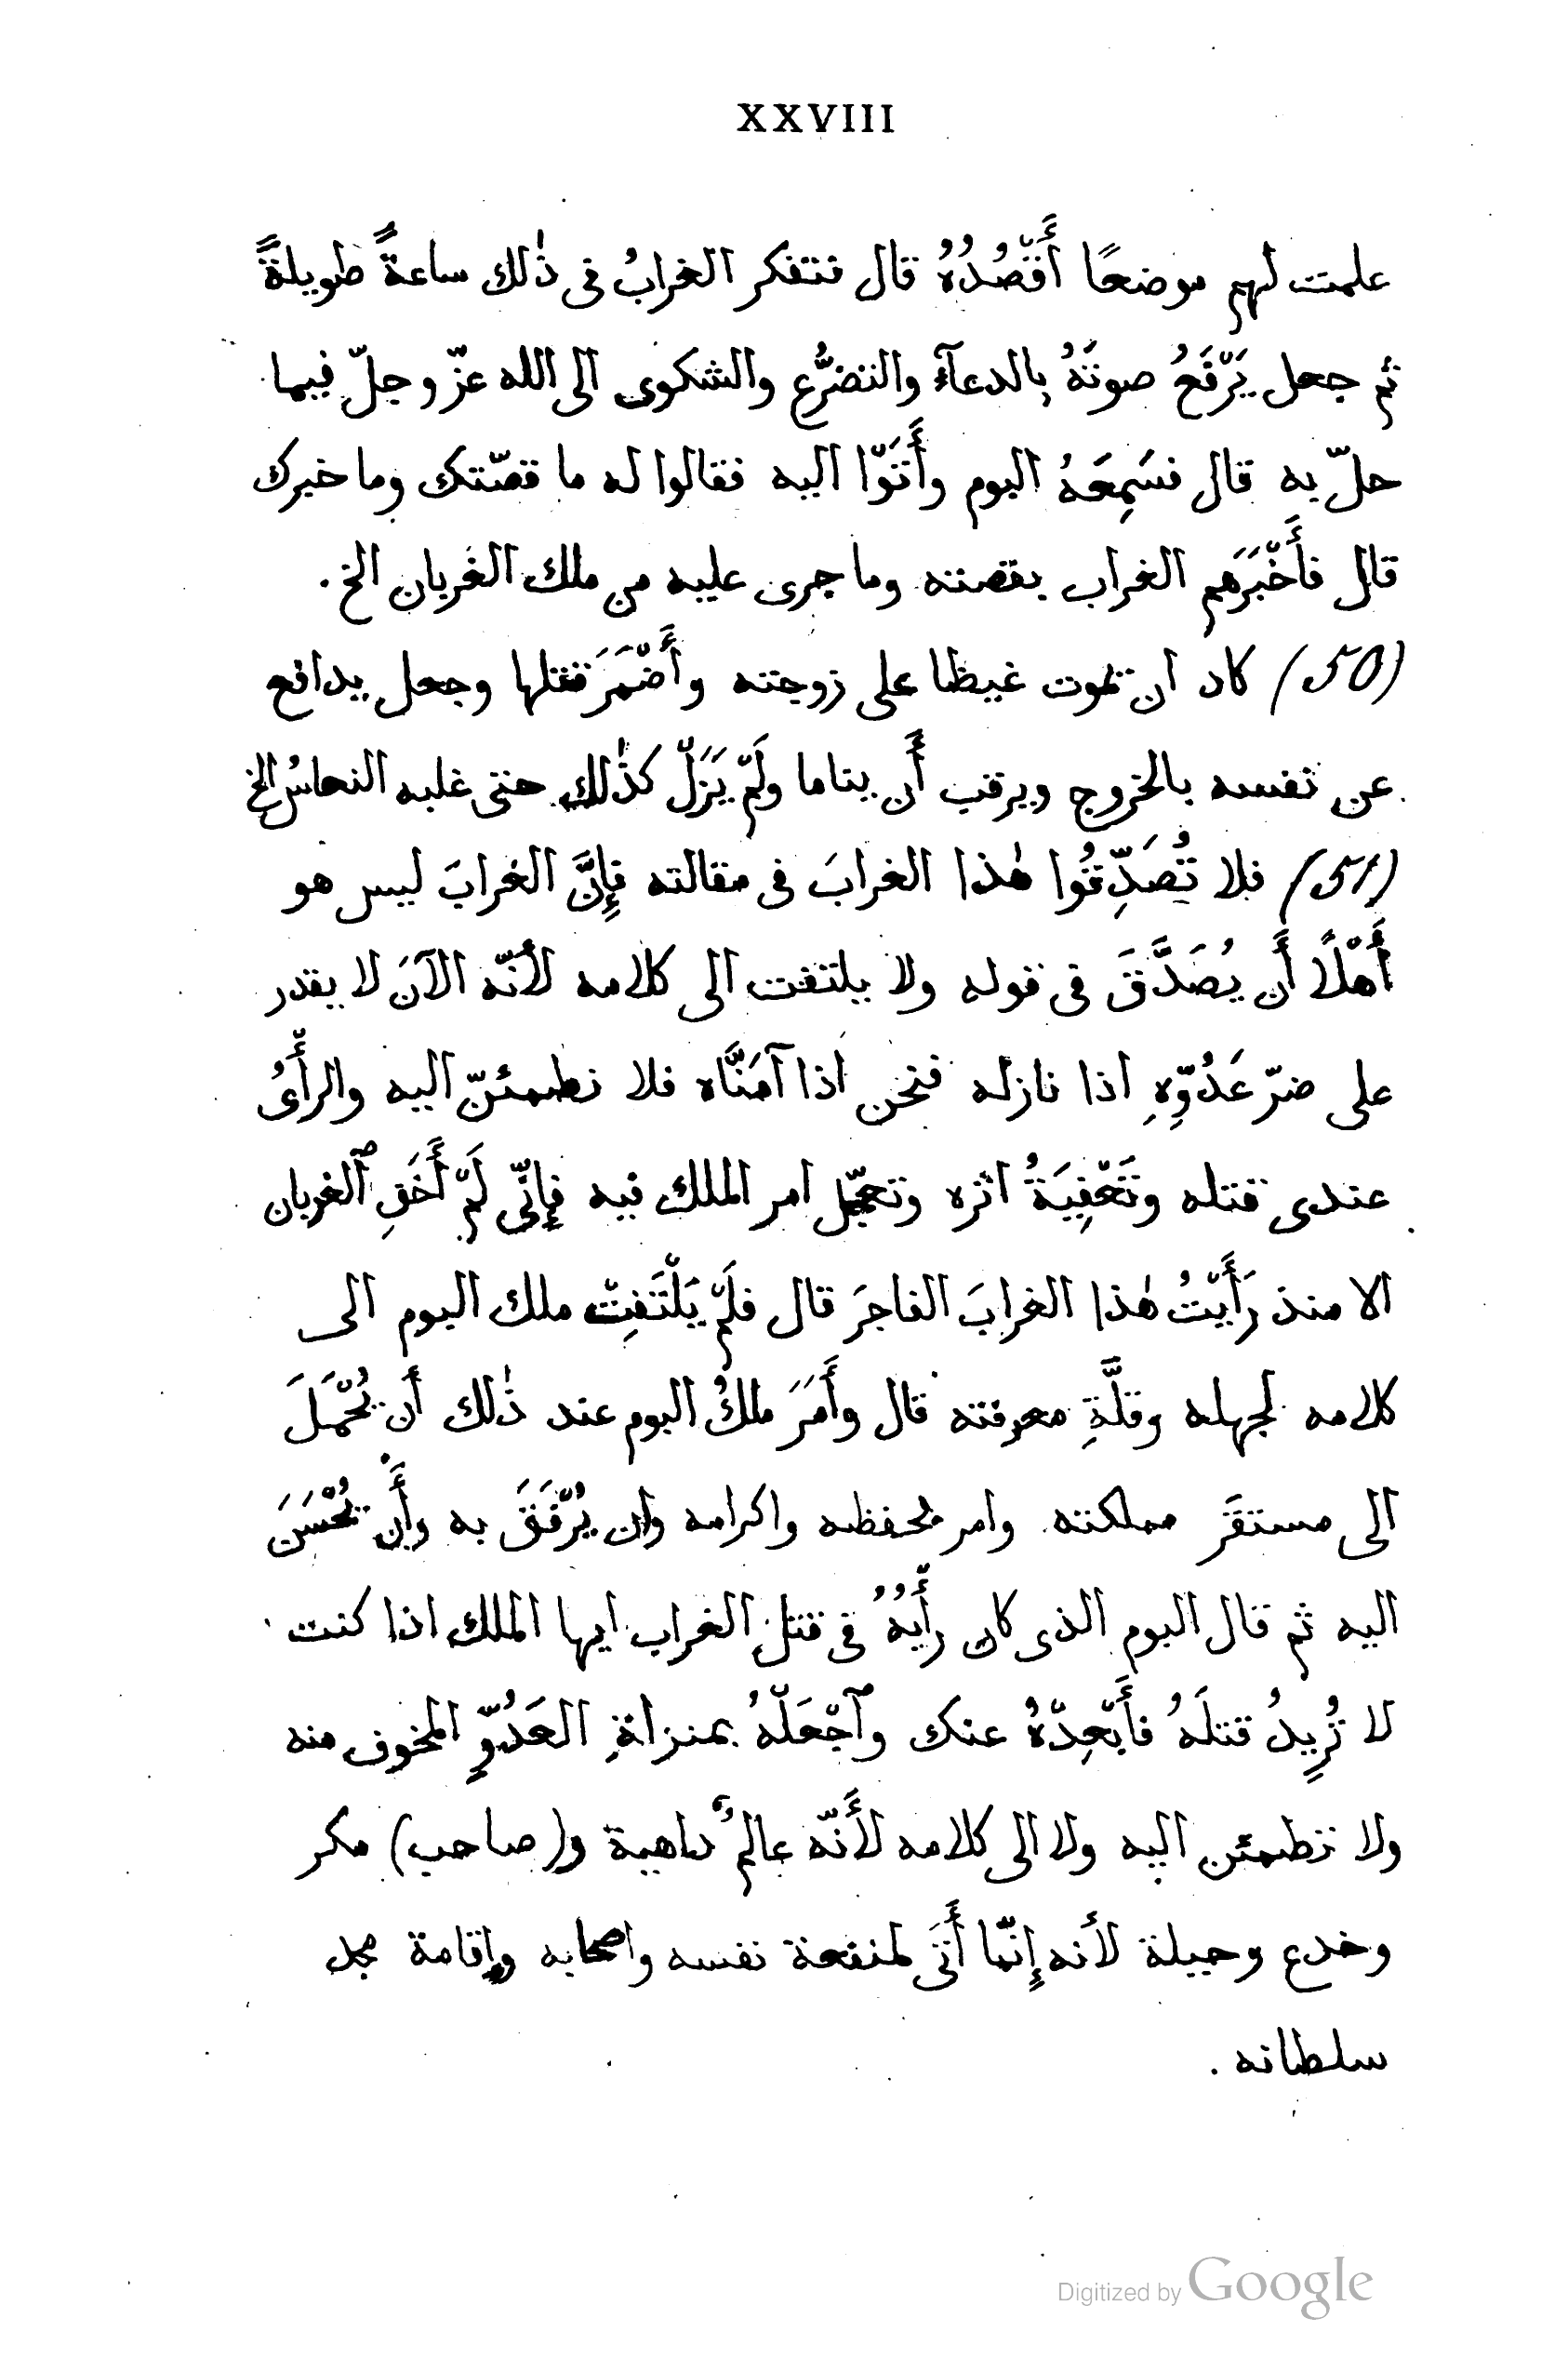 XXVIII
علمت لهم موضعًا أَقْصُدُهُ قال فتفكر الغرابُ فى ذٰلك ساعةً طويلةً
ثم جعل يَرْفَعُ صوتَهُ بالدعآء والتضرُّع والشكوى الى الله عزّ وجلّ فيما
حلّ به قال فسَمِعَهُ البوم وأَتَوْا اليه فقالوا له ما قصّتك وما خبرك
قال فأَخْبَرَهم الغراب بقصته وما جرى عليه من ملك الغربان الخ.
(50) كاد ان يموت غيظا على زوجته وأَضْمَرَ قتلها وجعل يدافع
عن نفسه بالخروج ويرقب أَن يناما ولَمْ يَزَلْ كذٰلك حتى غلبه النعاسُ الخ
(51) فلا تُصَدِّقُوا هٰذا الغرابَ فى مقالته فإِنَّ الغرابَ ليس هو
أَهْلًا أَن يُصَدَّقَ فى قوله ولا يلتفت الى كلامه لأنّه الآنَ لا يقدر
على ضرّ عَدُوِّهِ اذا نازله فنحن اذا آمَنَّاه فلا نطمئنّ اليه والرأْىُ
عندى قتله وتَعْفِيَةُ اثره وتعجّل امر الملك فيه فإِنّى لَمْ أَخَفِ ٱلغربان
الا منذ رَأَيْتُ هٰذا الغرابَ الفاجرَ قال فلَمْ يَلْتَفِتْ ملك البوم الى
كلامه لجهله وقلَّةِ معرفته قال وأَمَرَ ملكُ البوم عند ذٰلك أَن يُحْمَلَ
الى مستقَر مملكته وامر بحفظه واكرامه وان يُرْفَقَ به وأَنْ يُحْسَنَ
اليه ثم قال البوم الذى كان رأْيُهُ فى قتل الغراب ايها الملك اذا كنت
لا تُرِيدُ قتلَهُ فأَبْعِدْهُ عنك وٱجْعَلْهُ بمنزلةِ العَدُوِّ المخوف منه
ولا تطمئن اليه ولا الى كلامه لأَنّه عالمٌ داهية و(صاحب) مكر
وخدع وحيلة لأنه إِنّما أَتَى لمنفعة نفسه واصحابه وإقامة مجد
سلطانه .
Digitized by Google